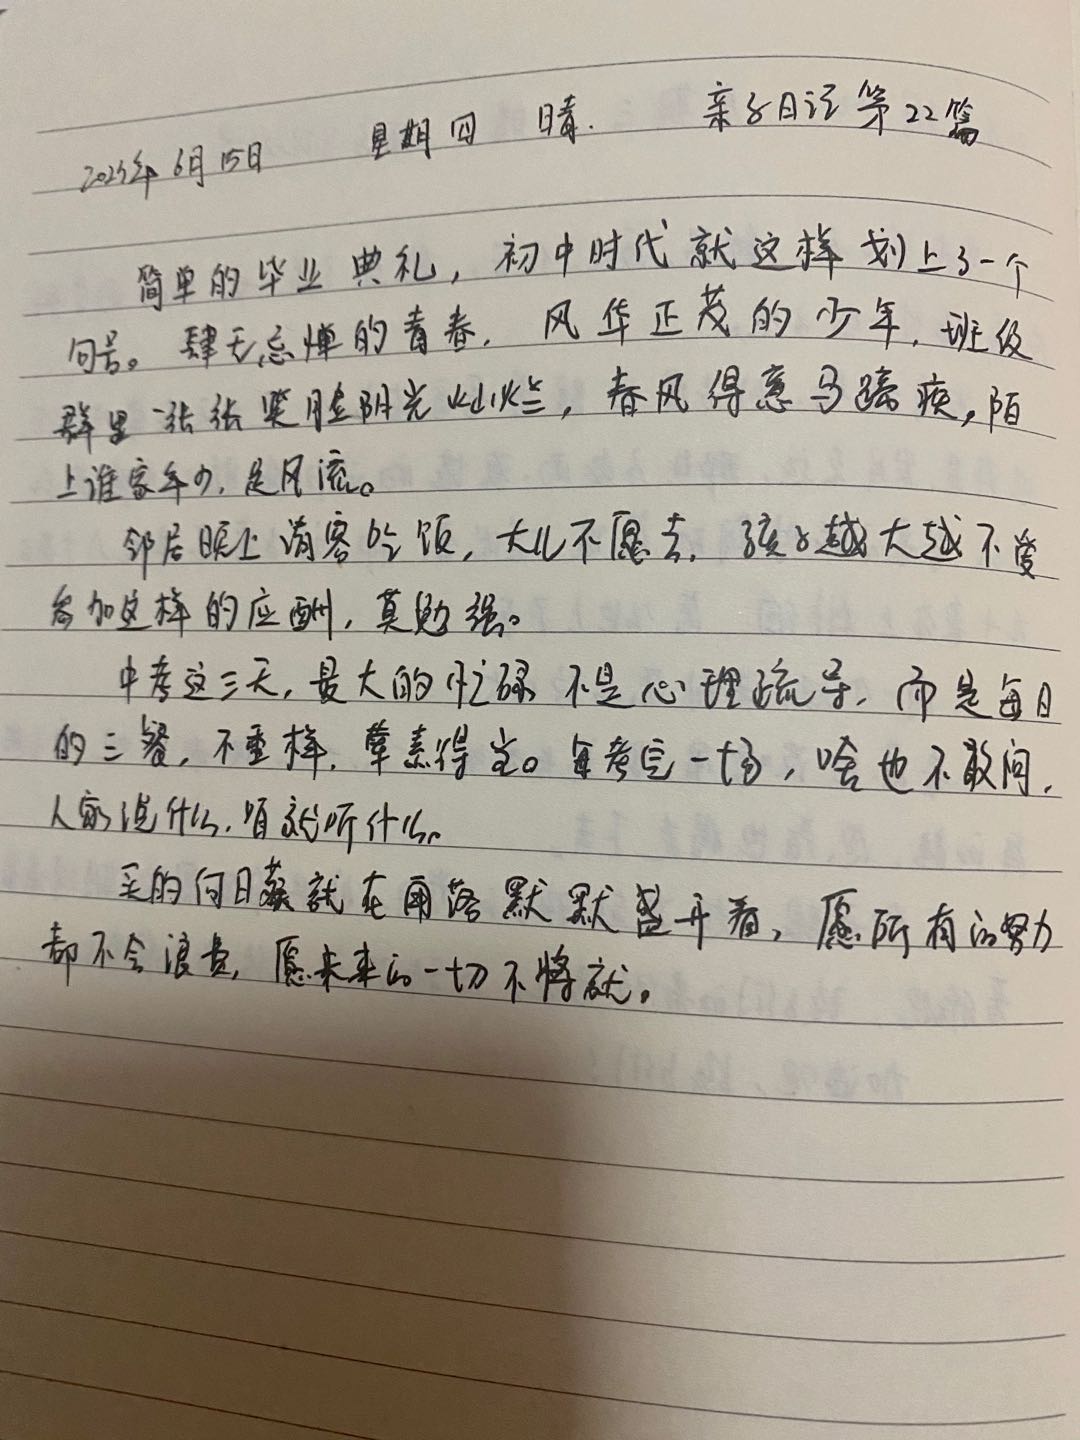 2023年6月15日 星期四 晴. 亲子日记第22篇
简单的毕业典礼，初中时代就这样划上了一个
句号。肆无忌惮的青春，风华正茂的少年，班级
群里一张张笑脸阳光灿烂，春风得意马蹄疾，陌
上谁家年少，足风流。
邻居晚上请客吃饭，大儿不愿去，孩子越大越不爱
参加这样的应酬，莫勉强。
中考这三天，最大的忙碌不是心理疏导，而是每日
的三餐，不重样，荤素得当。每考完一场，啥也不敢问，
人家说什么，咱就听什么。
买的向日葵就在角落默默盛开着，愿所有的努力
都不会浪费，愿未来的一切不将就。